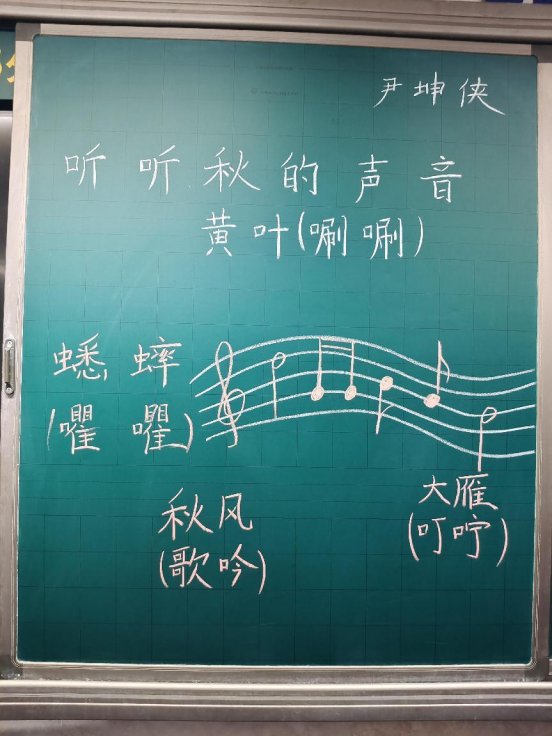 尹坤侠
听听秋的声音
黄叶(唰唰)
蟋蟀
(㘗㘗)
大雁
(叮咛)
秋风
(歌吟)